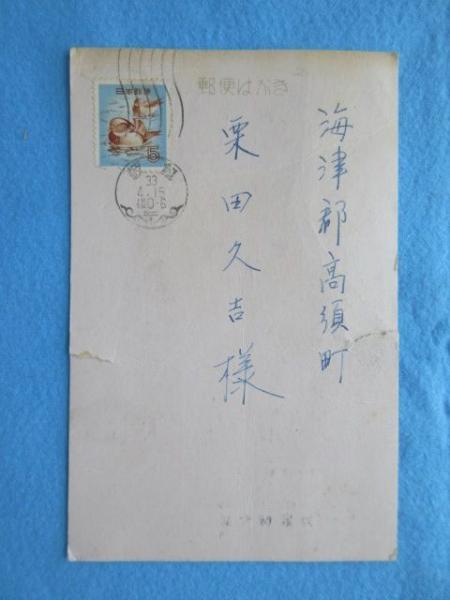 郵便はがき
日本郵便
5
33
4.15
海津郡高須町
栗田久吉様